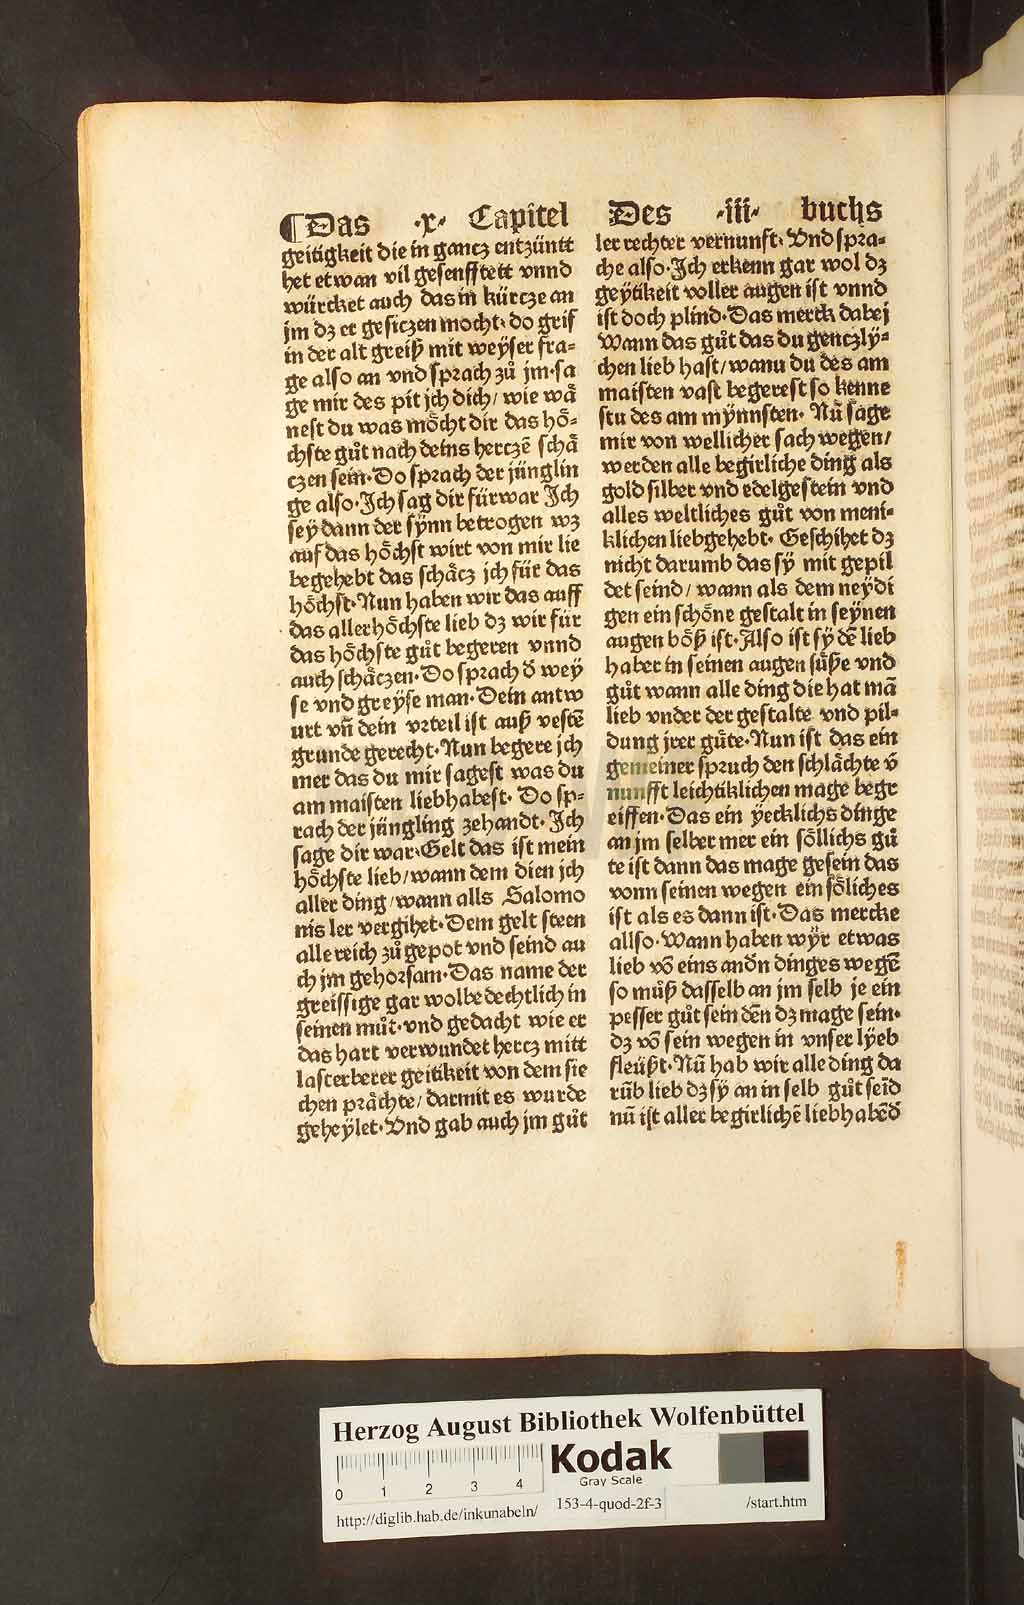 ¶Das ·x· Capitel
geitigkeit die in gancz entzüntt
het etwan vil gesenfftett vnnd
würcket auch das in kürcze an
jm dz er gesiczen mocht· do grif
in der alt greiß mit weÿser fra⸗
ge also an vnd sprach zů jm·sa
ge mir des pit jch dich/ wie wā
nest du was möcht dir das hö⸗
chste gůt nach deins herczē schä
czen sein·Do sprach der jüngling
ge also·Ich sag dir fürwar Ich
seÿ dann der sÿnn betrogen wz
auf das höchst wirt von mir lie
begehebt das schäcz jch für das
höchst·Nun haben wir das auff
das allerhöchste lieb dz wir für
das höchste gůt begeren vnnd
auch schäczen·Do sprach d̄ weÿ
se vnd greÿse man·Dein antw
urt vn̄ dein vrteil ist auß vestē
grunde gerecht·Nun begere jch
mer das du mir sagest was du
am maisten liebhabest· Do sp⸗
rach der jüngling zehandt· Ich
sage dir war·Gelt das ist mein
höchste lieb/wann dem dien jch
aller ding/wann alls Salomo
nis ler vergihet·Dem gelt steen
alle reich zů gepot vnd seind au
ch jm gehorsam·Das name der
greissige gar wolbedechtlich in
seinen můt·vnd gedacht wie er
das hart verwundet hercz mitt
lasterberer geitikeit von dem sie
chen prächte/darmit es wurde
geheÿlet·Vnd gab auch jm gůt
Des ·iii· buchs
ler rechter vernunft· Vnd spra⸗
che also·Ich erkenn gar wol dz
geÿtikeit voller augen ist vnnd
ist doch plind·Das merck dabej
Wann das gůt das du genczlÿ⸗
chen lieb hast/wanu du des am
maisten vast begerest so kenne
stu des am mÿnnsten· Nū sage
mir von wellicher sach wegen/
werden alle begirliche ding als
gold silber vnd edelgestein vnd
alles weltliches gůt von meni⸗
klichen liebgehebt· Geschihet dz
nicht darumb das sÿ mit gepil
det seind/ wann als dem neÿdi
gen ein schöne gestalt in seÿnen
augen böß ist·Also ist sÿ dē lieb
haber in seinen augen süße vnd
gůt wann alle ding die hat mā
lieb vnder der gestalte vnd pil⸗
dung jrer güte·Nun ist das ein
gemeiner spruch den schlächte v̄
nunfft leichtiklichen mage begr
eiffen·Das ein ÿecklichs dinge
an jm selber mer ein söllichs gů
te ist dann das mage gesein das
vonn seinen wegen ein söliches
ist als es dann ist·Das mercke
allso·Wann haben wÿr etwas
lieb vō eins and̄n dinges wegē
so můß dasselb an jm selb je ein
pesser gůt sein dēn dz mage sein·
dz vō sein wegen in vnser lÿeb
fleüßt·Nū hab wir alle ding da
rūb lieb dz sÿ an in selb gůt seīd
nū ist aller begirlichē liebhabēd̄
Herzog August Bibliothek Wolfenbüttel
Kodak
Gray Scale
0 1 2 3 4
http://diglib.hab.de/inkunabeln/ 153-4-quod-2f-3 /start.htm